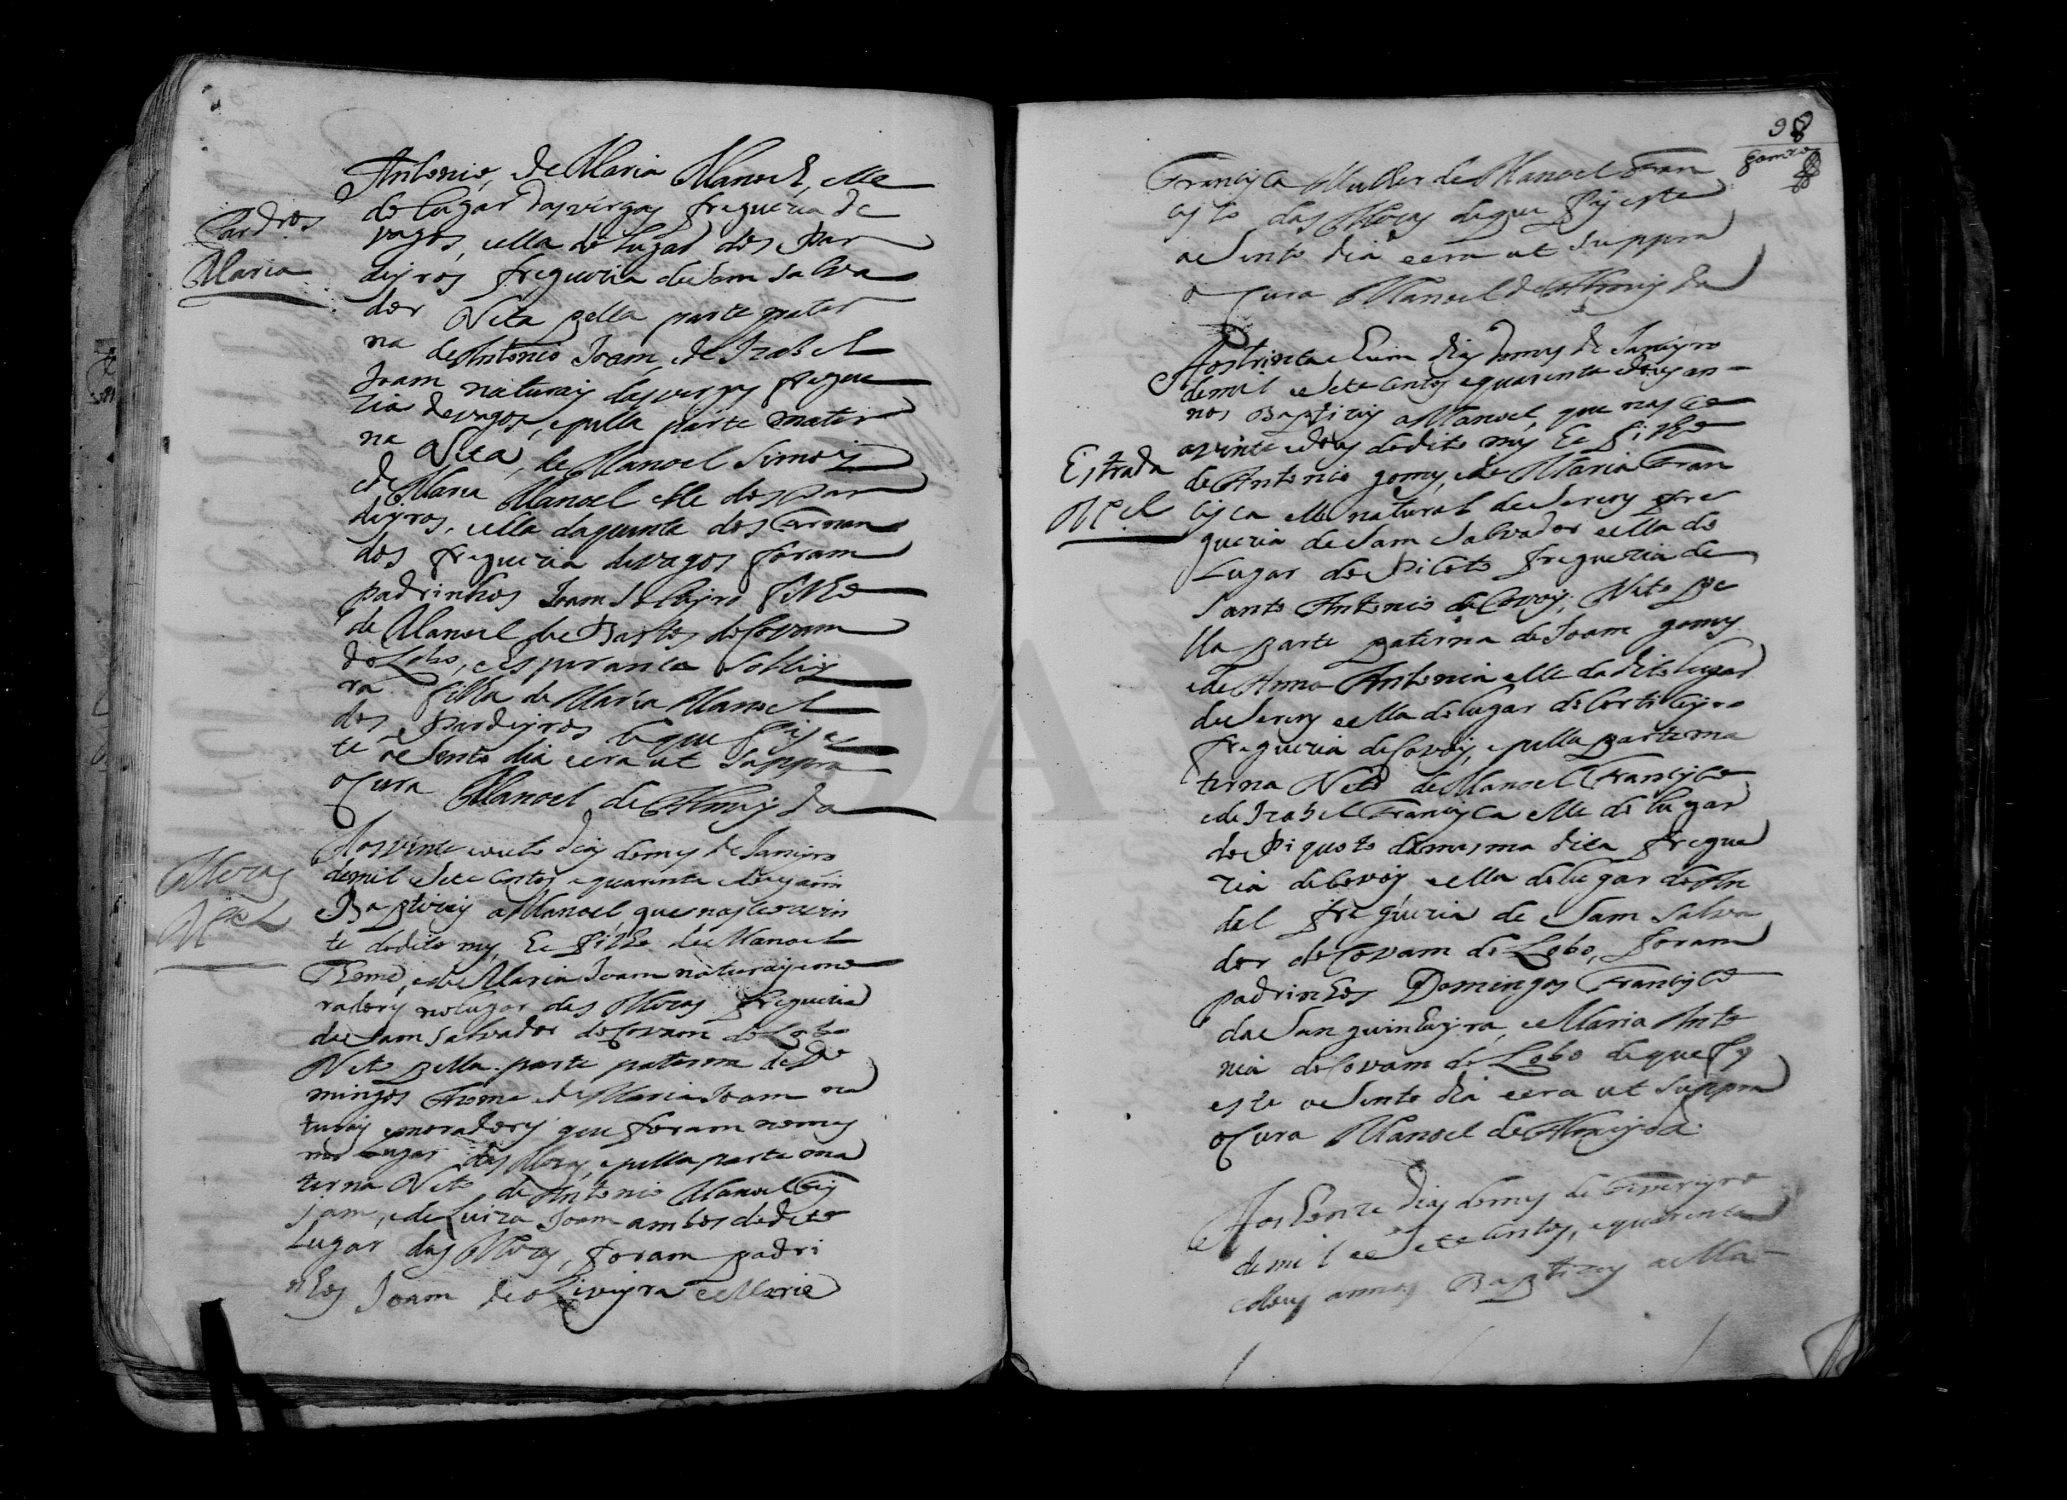 Pardros
Maria
Antonio, e de Maria Manoel, elle
do lugar das vergas freguezia de
vagos, e ella do lugar dos Par
deyros freguezia de Sam Salva
dor Neta pella parte pater
na de Antonio Joam, e de Izabel
Joam naturais das vergas fregue
zia de vagos, e pella parte mater
na Neta, de Manoel Simois
e de Maria Manoel elle dos par
deyros, e ella da quinta dos Fernan
dos freguezia de vagos foram
padrinhos Joam filho
de Manoel de Bastos de Covam
do Lobo, e Esperanca
ra filha de Maria Manoel
dos Pardeyros de que fis es
te asento dia e era ut Suppra
o Cura Manoel de Almeyda
Mezas
Mel
Aos vinte e outo dias do mes de Janeyro
de mil e sete centos e quarenta e dois ann
Baptizey a Manoel, que nasceo a vin
te do dito mes, he filho de Manoel
Thome, e de Maria Joam naturais e mo
radores no lugar das Mezas freguezia
de Sam Salvador de Covam do Lobo
Neto pella parte paterna de Do
mingos Thome e de Maria Joam na
turais e moradores que foram no mes
mo lugar das Mezas, e pella parte ma
terna Neto de Antonio Manoel
Joam, e de Luiza Joam ambos do dito
Lugar das Mezas, foram padri
nhos Joam de oLiveyra e Maria
98
Francisca Mulher de Manoel Fran
cisco das Mezas de que fis este
asento dia e era ut Suppra
o Cura Manoel de Almeyda
Estrada
Mel
Aos trinta e hum dias do mes de Janeyro
de mil e sete centos e quarenta e dois an
nos Baptizey a Manoel, que nasceo
a vinte e dois do dito mes he filho
de Antonio gomes, e de Maria Fran
cisca elle natural de Serem fre
guezia de Sam Salvador e ella do
Lugar do Picoto freguezia de
Santo Antonio de Covois, Neto pe
lla parte paterna de Joam gomes
e de Anna Antonia elle do dito lugar
de Serem e ella do lugar do Corticeyro
freguezia de Covois, e pella parte ma
terna Neto de Manoel Francisco
e de Izabel Francisca elle do lugar
do Piquoto da mesma dita fregue
zia de Covois e ella do lugar de An
dal freguezia de Sam Salva
dor de Covam do Lobo, foram
padrinhos Domingos Francisco
da Sanguinheyra, e Maria Anto
nia de Covam do Lobo de que fis
este asento dia e era ut Suppra
o Cura Manoel de Almeyda
Aos honze dias do mes de Fevereyro
de mil e sete centos, e quarenta
e dous annos Baptizey a Ma